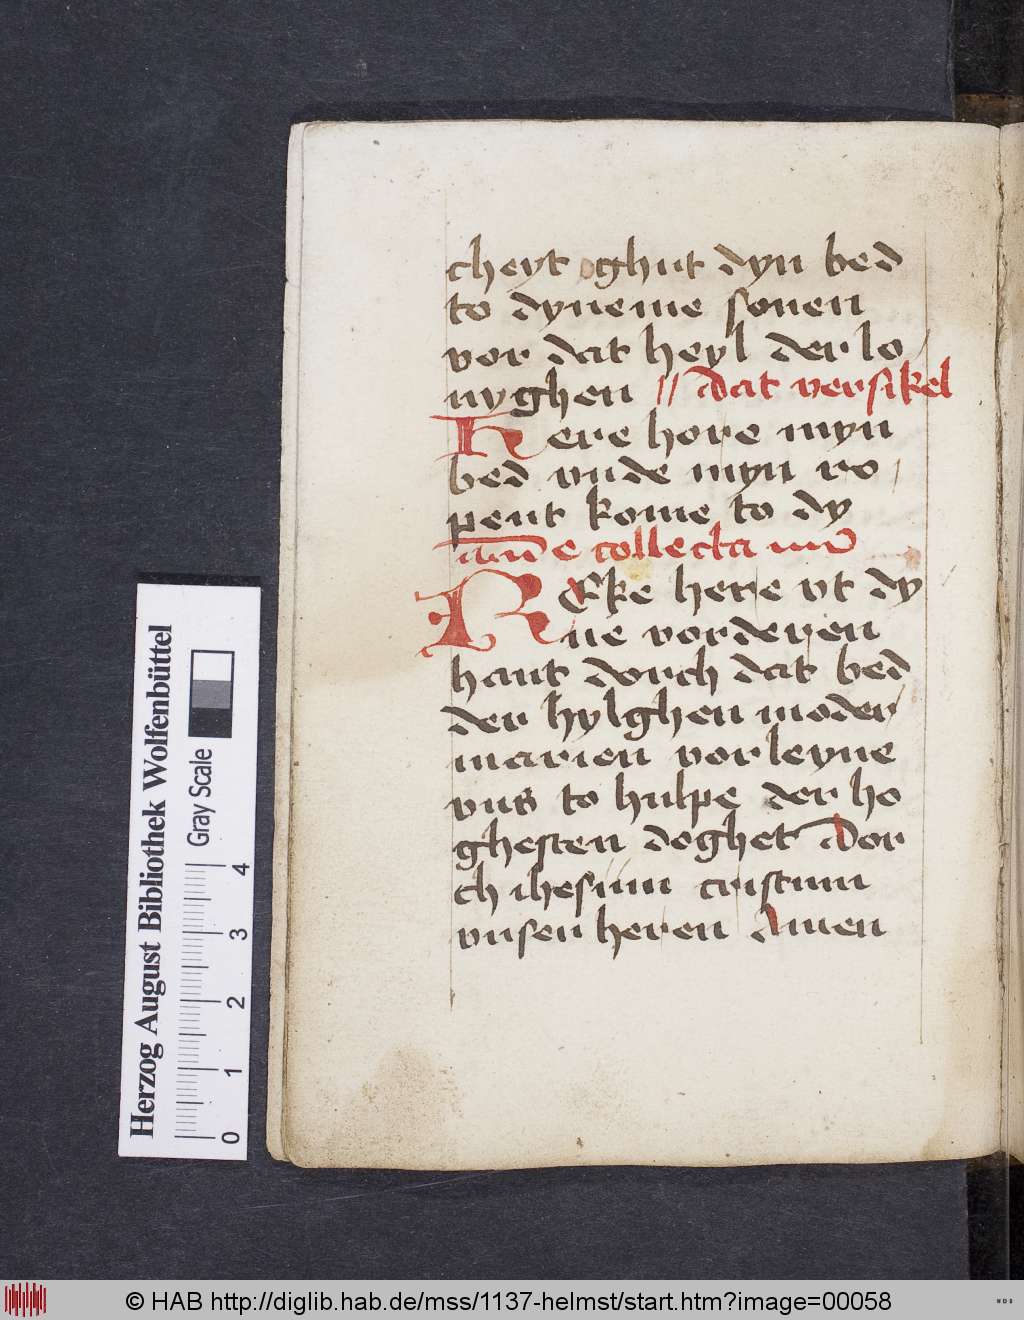 cheyt ghut dyn bed
to dyneme sonen
vor dat heyl der lo/
nyghen // dat versikel
Here hore myn
bed vnde myn ro/
pent kome to dy
collecta
REke here vt dy
ne vorderen
hant dorch dat bed
der hylghen moder
marien vorleyne
vns to hulpe der ho
ghesten doghet Dor
ch ihesum cristum
vnsen heren Amen
Herzog August Bibliothek Wolfenbüttel
Gray Scale
0 1 2 3 4
© HAB http://diglib.hab.de/mss/1137-helmst/start.htm?image=00058